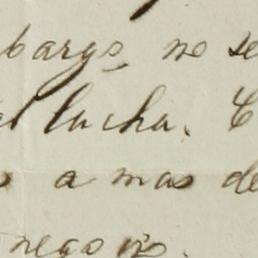 bargo, no se
al lucha. C
s a mas de
negocio.